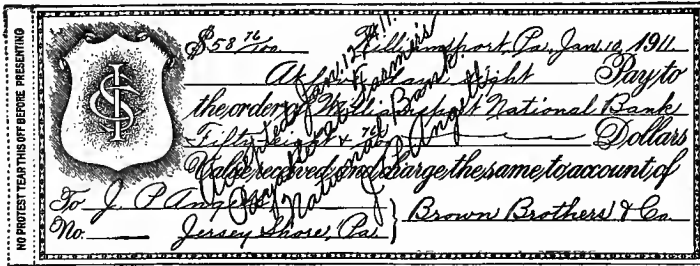 NO PROTEST TEAR THIS OFF BEFORE PRESENTING
$58 76/100 Williamsport, Pa, Jan. 10, 1911
At sight Pay to
the order of Williamsport National Bank
Fifty eight & 76/100 Dollars
Value received and charge the same to account of
To J. P. Angell
No. Jersey Shore, Pa } Brown Brothers & Co
Accepted Jan. 12, 1911.
Payable at Farmers
National Bank.
J. P. Angell